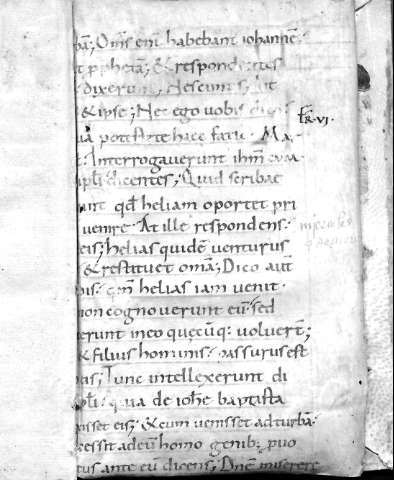 bā; Om̄s eni habebant iohannē
t ꝓphetā; & respondentes
dixerunt; Nescimus; Ait
& ipse; Nec ego vobis dico
ua potestate haec faciā. Ma
t. Interrogaverunt ihm̄
ipłi dicentes; Quid scribae
unt qđ heliam oportet pri
venire. At ille respondens.
eis; helias quidē venturus
& restituet omā; Dico aūt
bis. qm̄ helias iam venit.
non cognoverunt eū. sed
erunt in eo quęcūq; voluert̄;
& filius hominis. passurus est
eis; Tunc intellexerunt di
płi. quia de iohe baptista
ixisset eis; & cum venisset ad turbā.
cessit ad eū homo genib; pvo
tus ante eū dicens; Dnē miserere
FR·VI·